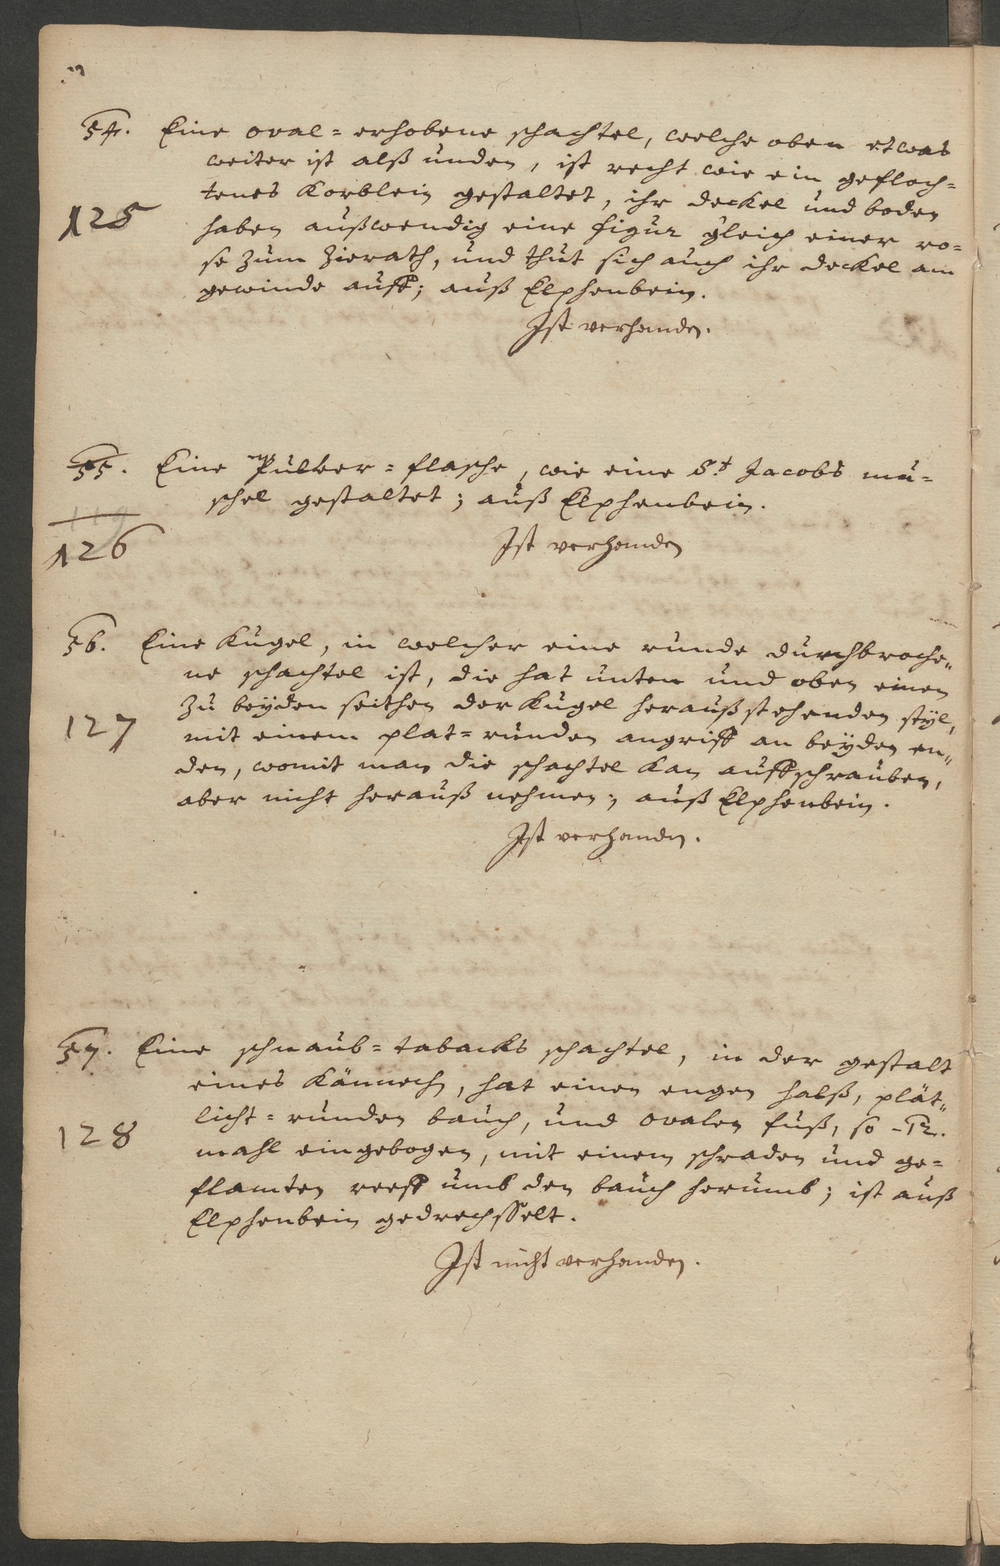 54. Eine oval-erhobene schachtel, welche oben etwas
weiter ist alß unden, ist recht wie ein gefloch=
tenes Korblein gestaltet, ihr deckel und boden
125
haben außwendig eine figur gleich einer ro=
se zum Zierath, und thut sich auch ihr deckel am
gewinde auff; auß Elphenbein.
Ist verhanden.
55. Eine Pulver=flasche, wie eine St. Jacobs mu=
schel gestaltet; auß Elphenbein.
126
Ist verhanden
56. Eine Kugel, in welcher eine runde durchbroche„
ne schachtel ist, die hat unten und oben einen
zu beÿden seithen der Kugel heraußstehenden stÿl,
127
mit einem plat=runden angriff an beÿden en„
den, womit man die schachtel kan auffschrauben,
aber nicht herauß nehmen; auß Elphenbein.
Ist verhanden.
57. Eine schnaub=tabacks schachtel, in der gestalt
eines Kännech, hat einen engen halß, plät„
licht=runden bauch, und ovalen fuß, so -12.
128
mahl eingebogen, mit einem schraden und ge=
flamten reeff umb den bauch herumb; ist auß
Elphenbein gedrechsselt.
Ist nicht verhanden.